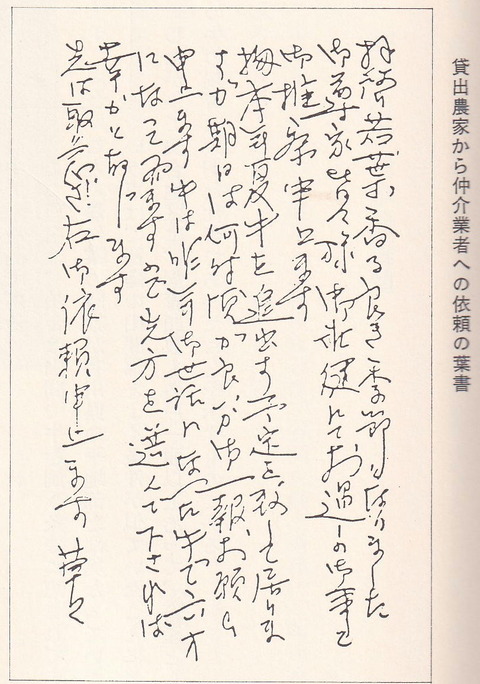 貸出農家から仲介業者への依頼の葉書
拝啓 若葉香る良き季節になりました
御尊家皆々様御壮健にてお過しの御事と
御推察申上ます
扨本年夏牛を追出す予定を致して居りま
すが期日は何時頃が良いか御一報お願い
申上ます 牛は昨年御世話になった牛で六才
になって居ますので先方を選んで下されば
幸かと存じます
先は取急ぎ右御依頼申上ます 草々